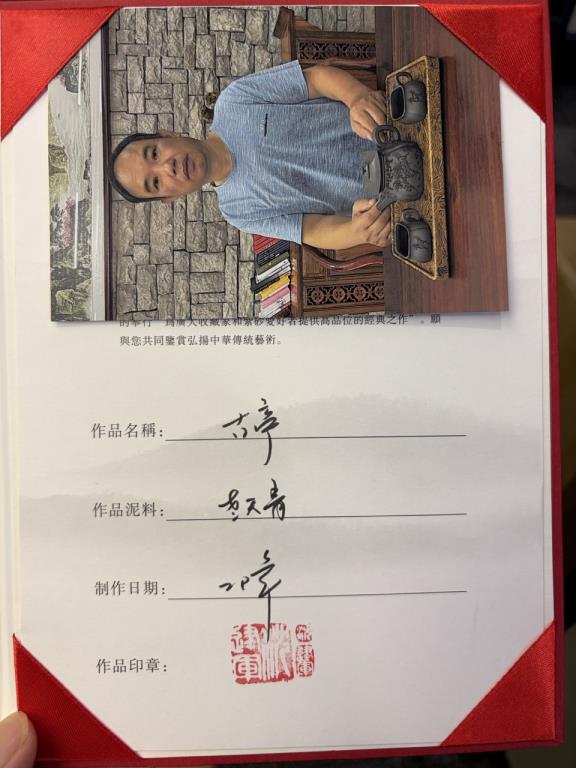 的奉行“爲廣大收藏家和紫砂愛好者提供高品位的經典之作”。願
與您共同鑒賞弘揚中華傳統藝術。
作品名稱：
作品泥料：老天青
制作日期：
作品印章：建軍